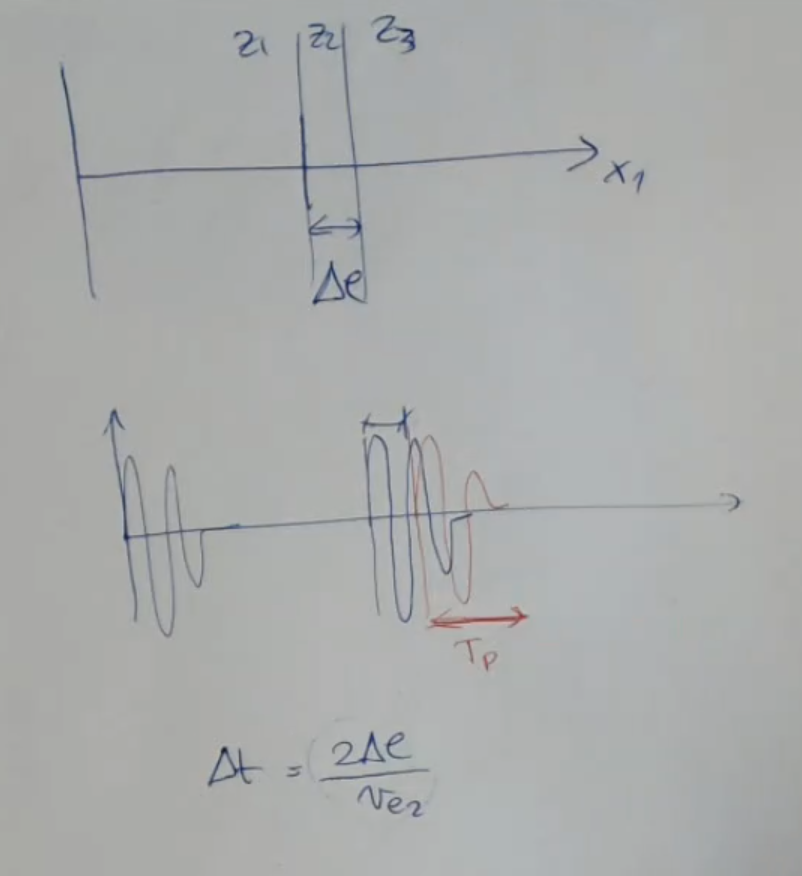 Z1 Z2 Z3
x1
Δe
Tp
Δt = 2Δe / ve2